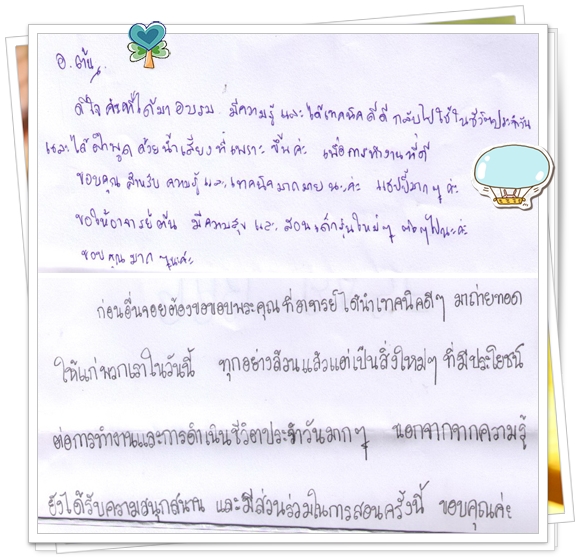 อ. ตั้น
ดีใจค่ะที่ได้มาอบรม มีความรู้ และได้เทคนิคดีดี กลับไปใช้ในชีวิตประจำวัน
และได้ฝึกพูดด้วยน้ำเสียงที่เพราะขึ้นค่ะ เพื่อการทำงานที่ดี
ขอบคุณ สำหรับ ความรู้ และเทคนิคมากมายนะค่ะ แฮปปี้มากๆ ค่ะ
ขอให้อาจารย์ตั้น มีความสุข และ สอนเด็กรุ่นใหม่ๆ ต่อๆไปนะค่ะ
ขอบคุณมาก ๆนะค่ะ
ก่อนอื่นจอยต้องขอขอบพระคุณที่อาจารย์ได้นำเทคนิคดีๆ มาถ่ายทอด
ให้แก่พวกเราในวันนี้ ทุกอย่างล้วนแล้วแต่เป็นสิ่งใหม่ๆ ที่มีประโยชน์
ต่อการทำงานและการดำเนินชีวิตประจำวันมากๆ นอกจากจากความรู้
ยังได้รับความสนุกสนาน และมีส่วนร่วมในการสอนครั้งนี้ ขอบคุณค่ะ